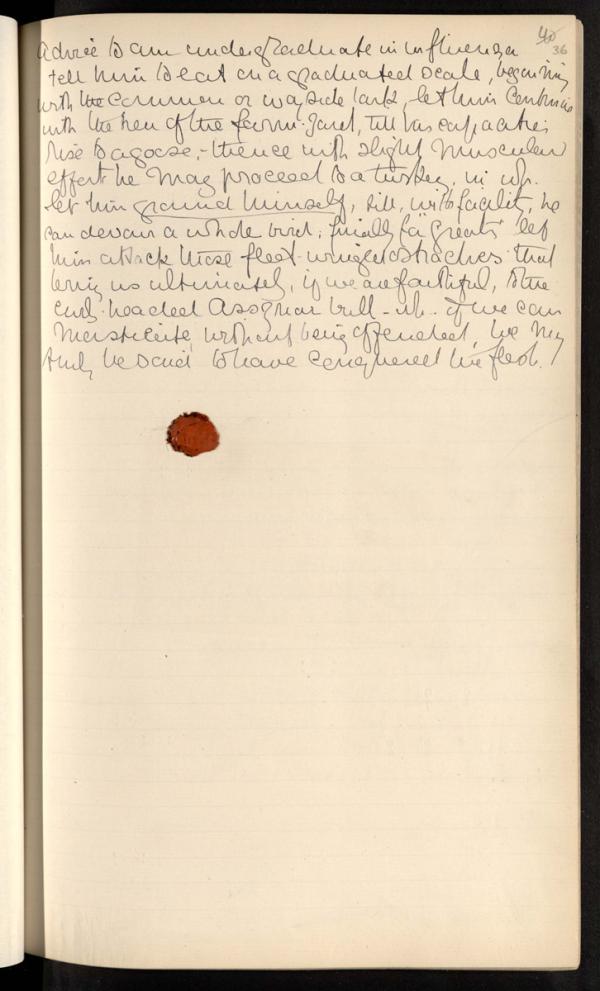 40
36
Advice to am undergraduate in influenza
tell him to eat on a graduated scale, beginning
with the common or wayside lark, let him continue
with the hen of the farm-yard, till his capacities
rise to a goose, - thence with slight muscular
effort he may proceed to a turkey, in wh.
let him ground himself, till, with facility, he
can devour a whole bird; finally for "greats" let
him attack those fleet-winged ostriches that
bring us ultimately, if we are faithful, to the
curly-headed Assyrian bull - wh. if we can
masticate, without being offended, we may
truly be said to have conquered the flesh.